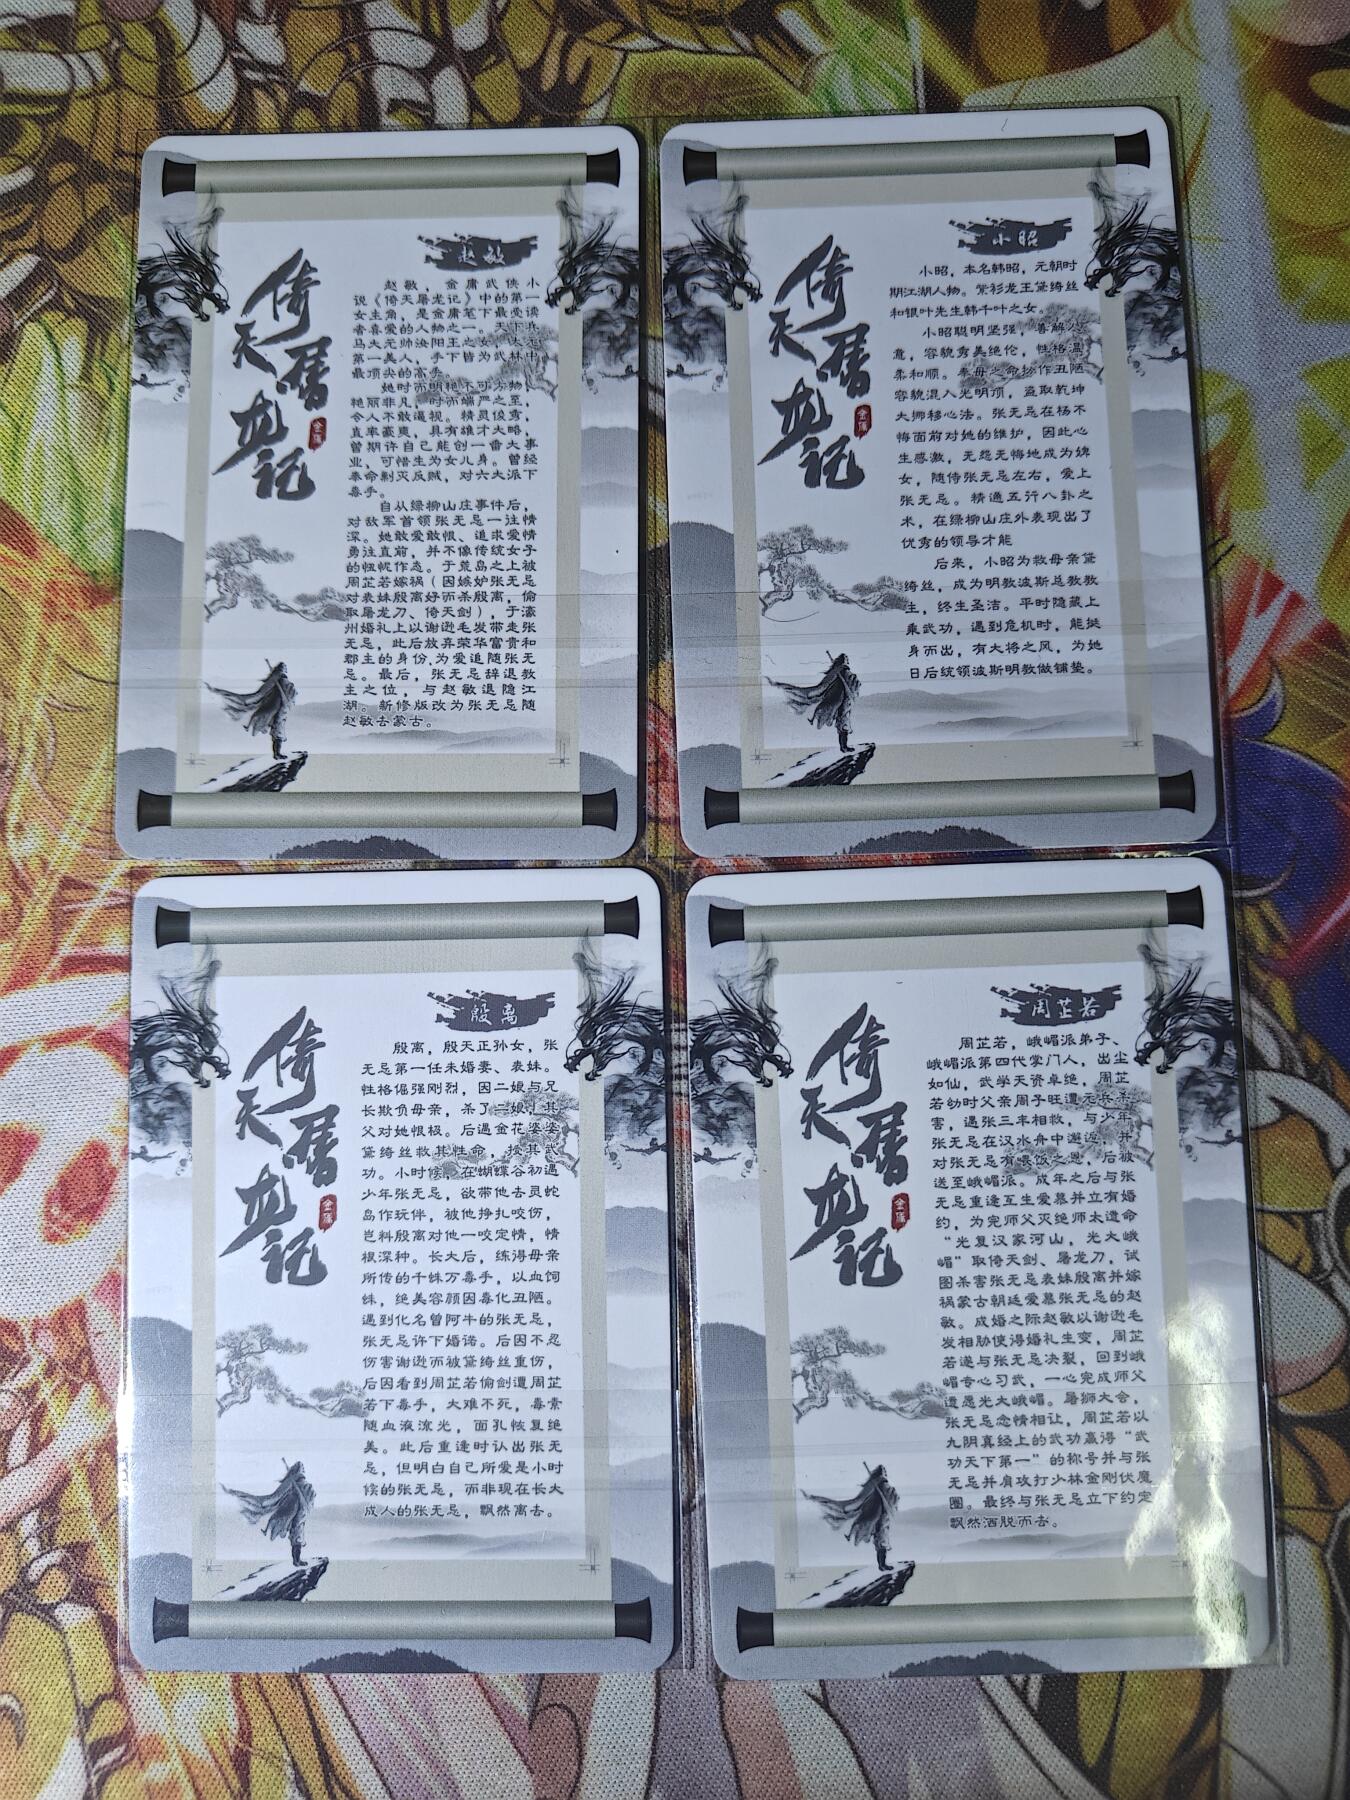 倚天屠龙记
金庸
赵敏
赵敏，金庸武侠小
说《倚天屠龙记》中的第一
女主角，是金庸笔下最受读
者喜爱的人物之一。天下兵
马大元帅汝阳王之女，大元
第一美人，手下皆为武林中
最顶尖的高手。
她时而明艳不可方物、
艳丽非凡，时而端严之至，
令人不敢逼视。精灵俊秀，
直率豪爽，具有雄才大略，
曾期许自己能创一番大事
业，可惜生为女儿身。曾经
奉命剿灭反贼，对六大派下
毒手。
自从绿柳山庄事件后，
对敌军首领张无忌一注情
深。她敢爱敢恨、追求爱情
勇注直前，并不像传统女子
的忸怩作态。于荒岛之上被
周芷若嫁祸（因嫉妒张无忌
对表妹殷离好而杀殷离，偷
取屠龙刀、倚天剑），于濠
州婚礼上以谢逊毛发带走张
无忌，此后放弃荣华富贵和
郡主的身份，为爱追随张无
忌。最后，张无忌辞退教
主之位，与赵敏退隐江
湖。新修版改为张无忌随
赵敏去蒙古。
倚天屠龙记
金庸
小昭
小昭，本名韩昭，元朝时
期江湖人物。紫衫龙王黛绮丝
和银叶先生韩千叶之女。
小昭聪明坚强，善解人
意，容貌秀美绝伦，性格温
柔和顺。奉母之命扮作丑陋
容貌混入光明顶，盗取乾坤
大挪移心法。张无忌在杨不
悔面前对她的维护，因此心
生感激，无怨无悔地成为婢
女，随侍张无忌左右，爱上
张无忌。精通五行八卦之
术，在绿柳山庄外表现出了
优秀的领导才能
后来，小昭为救母亲黛
绮丝，成为明教波斯总教教
主，终生圣洁。平时隐藏上
乘武功，遇到危机时，能挺
身而出，有大将之风，为她
日后统领波斯明教做铺垫。
倚天屠龙记
金庸
殷离
殷离，殷天正孙女，张
无忌第一任未婚妻、表妹。
性格倔强刚烈，因二娘与兄
长欺负母亲，杀了二娘，其
父对她恨极。后遇金花婆婆
黛绮丝救其性命，授其武
功。小时候，在蝴蝶谷初遇
少年张无忌，欲带他去灵蛇
岛作玩伴，被他挣扎咬伤，
岂料殷离对他一咬定情，情
根深种。长大后，练得母亲
所传的千蛛万毒手，以血饲
蛛，绝美容颜因毒化丑陋。
遇到化名曾阿牛的张无忌，
张无忌许下婚诺。后因不忍
伤害谢逊而被黛绮丝重伤，
后因看到周芷若偷剑遭周芷
若下毒手，大难不死，毒素
随血液流光，面孔恢复绝
美。此后重逢时认出张无
忌，但明白自己所爱是小时
候的张无忌，而非现在长大
成人的张无忌，飘然离去。
倚天屠龙记
金庸
周芷若
周芷若，峨嵋派弟子、
峨嵋派第四代掌门人，出尘
如仙，武学天资卓绝，周芷
若幼时父亲周子旺遭元兵杀
害，遇张三丰相救，与少年
张无忌在汉水舟中邂逅，并
对张无忌有喂饭之恩，后被
送至峨嵋派。成年之后与张
无忌重逢互生爱慕并立有婚
约，为完师父灭绝师太遗命
“光复汉家河山，光大峨
嵋”取倚天剑、屠龙刀，试
图杀害张无忌表妹殷离并嫁
祸蒙古朝廷爱慕张无忌的赵
敏。成婚之际赵敏以谢逊毛
发相胁使得婚礼生变，周芷
若遂与张无忌决裂，回到峨
嵋专心习武，一心完成师父
遗愿光大峨嵋。屠狮大会，
张无忌念情相让，周芷若以
九阴真经上的武功赢得“武
功天下第一”的称号并与张
无忌并肩攻打少林金刚伏魔
圈。最终与张无忌立下约定
飘然洒脱而去。